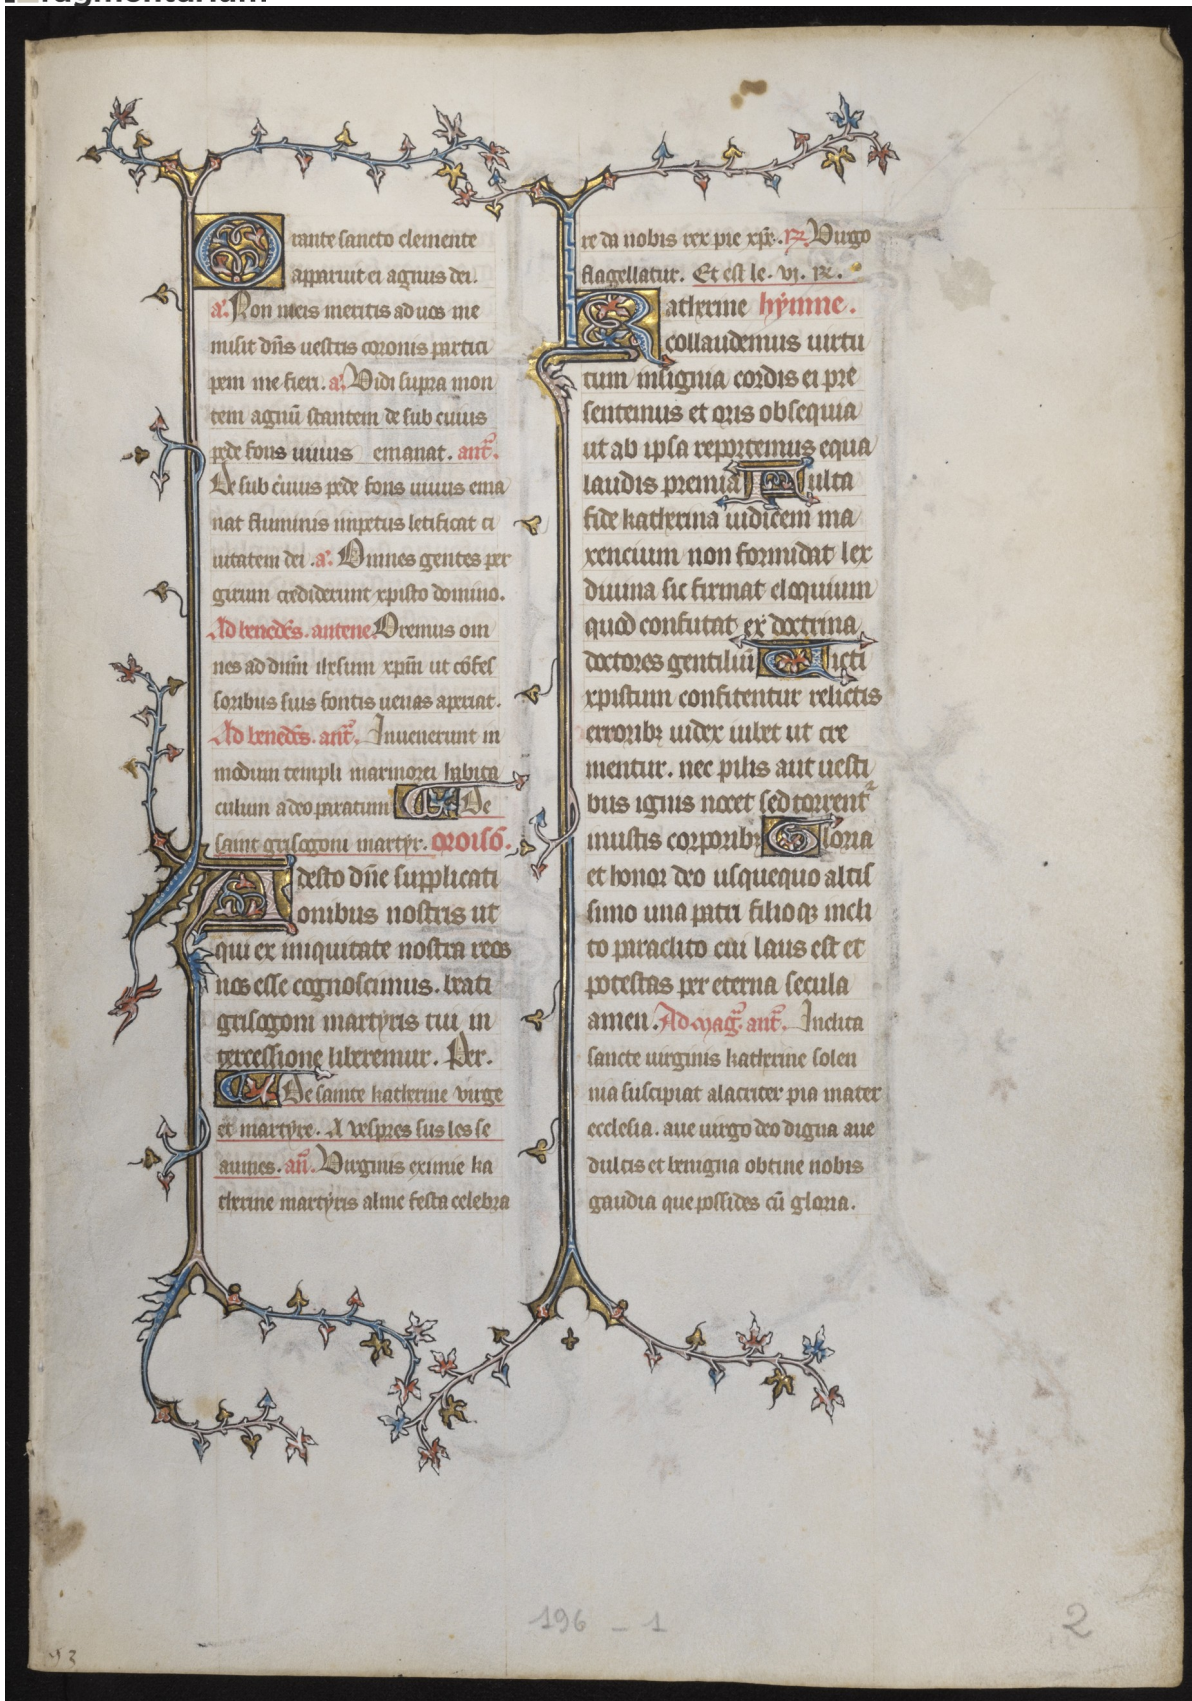 fragmentarium
Orante sancto clemente
apparuit ei agnus dei.
a. Non meis meritis ad uos me
misit dñs uestris coronis partici
pem me fieri. a. Vidi supra mon
tem agnū stantem de sub cuius
pede fons uiuus emanat. ant.
De sub cuius pede fons uiuus ema
nat fluminis impetus letificat ci
uitatem dei .a. Omnes gentes per
girum crediderunt xpisto domino.
Ad benedc̄s. antene Oremus om
nes ad dn̄m ihesum xpm̄ ut cōfes
soribus suis fontis uenas aperiat.
Ad benedc̄s. ant. Inuenerunt in
modum templi marmorei habita
culum a deo paratum Eu De
saint grisogoni martyr. oroisō.
Adesto dn̄e supplicati
onibus nostris ut
qui ex iniquitate nostra reos
nos esse cognoscimus. beati
grisogoni martyris tui in
tercessione liberemur. Per.
De sainte katherine virge
et martyre. A vespres sus les se
aumes. an̄. Virginis eximie ka
therine martyris alme festa celebra
re da nobis rex pie xp̄e. R. Virgo
flagellatur. Et est le. vj. R.
Katherine hymne.
collaudemus uirtu
tum insignia cordis ei pre
sentemus et oris obsequia
ut ab ipsa reportemus equa
laudis premia Multa
fide katherina iudicem ma
xencium non formidat lex
diuina sic firmat eloquium
quod confutat ex doctrina
doctores gentiliū Uicti
xpistum confitentur relictis
erroribꝫ iudex iubet ut cre
mentur. nec pilis aut uesti
bus ignis nocet sed torrent
inustis corporibꝫ Gloria
et honor deo usquequo altis
simo una patri filioqꝫ incli
to paraclito cui laus est et
potestas per eterna secula
amen. Ad mag̃. ant. Inclita
sancte uirginis katherine solen
nia suscipiat alacriter pia mater
ecclesia. aue uirgo deo digna aue
dulcis et benigna obtine nobis
gaudia que possides cū gloria.
196 - 1
2